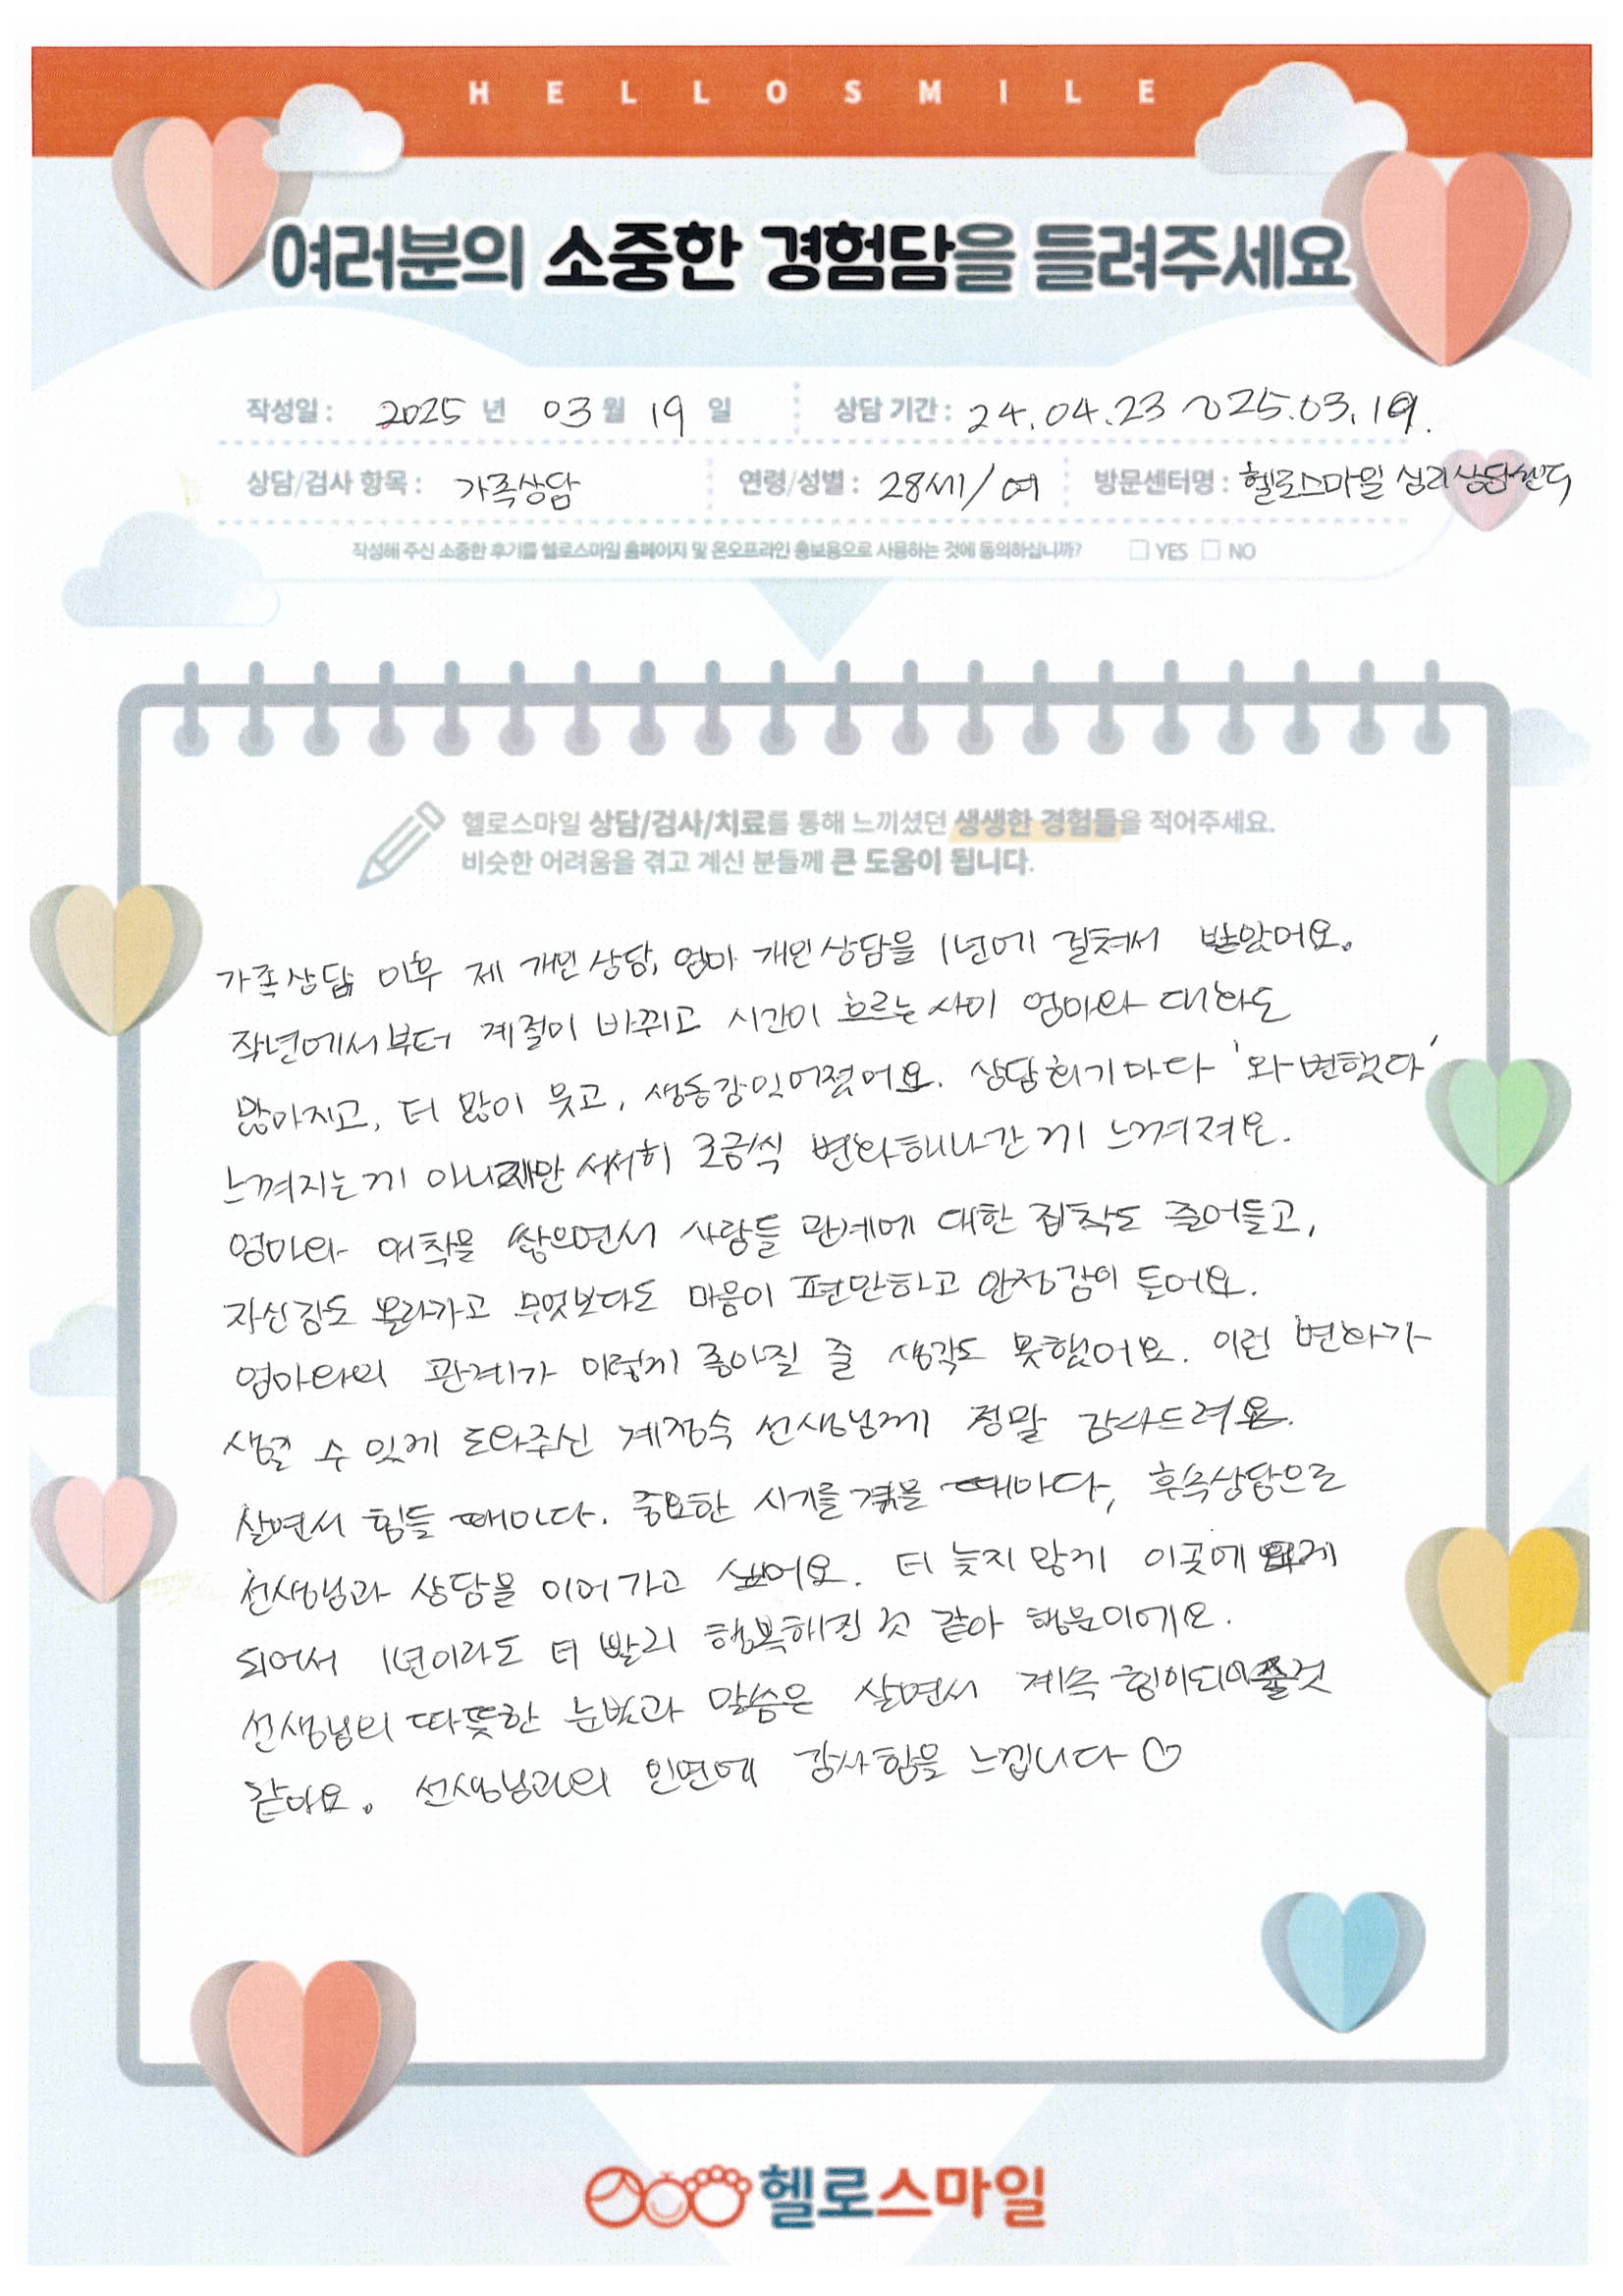 HELLOSMILE
여러분의 소중한 경험담을 들려주세요
작성일 : 2025 년 03 월 19 일 상담 기간 : 24.04.23 ~025.03.19.
상담/검사 항목 : 가족상담 연령/성별 : 28세/여 방문센터명 : 헬로스마일 심리상담센터
작성해 주신 소중한 후기를 헬로스마일 홈페이지 및 온오프라인 홍보용으로 사용하는 것에 동의하십니까? YES NO
헬로스마일 상담/검사/치료를 통해 느끼셨던 생생한 경험들을 적어주세요.
비슷한 어려움을 겪고 계신 분들께 큰 도움이 됩니다.
가족상담 이후 제 개인상담, 엄마 개인상담을 1년에 걸쳐서 받았어요.
작년에서부터 계절이 바뀌고 시간이 흐르는 사이 엄마와 대화도
많아지고, 더 많이 웃고, 생동감있어졌어요. 상담회기마다 '와 변했다'
느껴지는게 아니지만 서서히 조금씩 변화해나간게 느껴져요.
엄마와 애착을 쌓으면서 사람들 관계에 대한 집착도 줄어들고,
자신감도 올라가고 무엇보다도 마음이 편안하고 안정감이 들어요.
엄마와의 관계가 이렇게 좋아질 줄 생각도 못했어요. 이런 변화가
생길 수 있게 도와주신 계정숙 선생님께 정말 감사드려요.
살면서 힘들 때마다. 중요한 시기를 겪을 때마다, 후속상담으로
선생님과 상담을 이어가고 싶어요. 더 늦지 않게 이곳에 오게
되어서 1년이라도 더 빨리 행복해진 것 같아 행운이에요.
선생님의 따뜻한 눈빛과 말씀은 살면서 계속 힘이되어줄것
같아요. 선생님과의 인연에 감사함을 느낍니다♡
헬로스마일